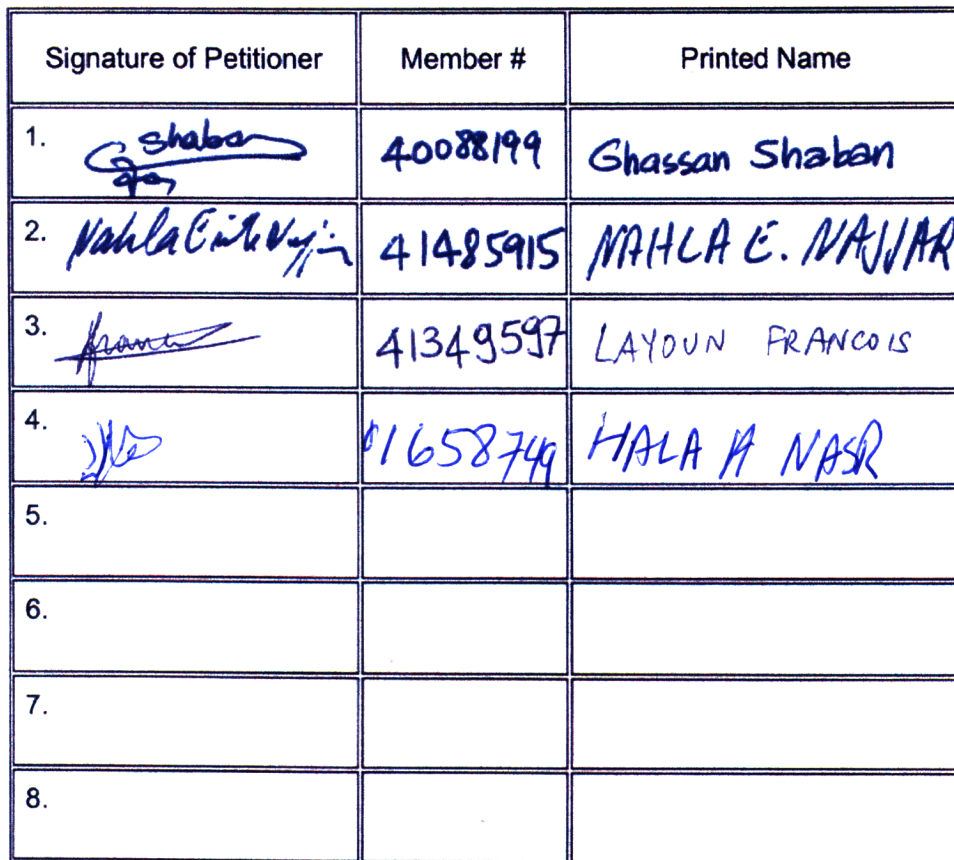 Signature of Petitioner Member # Printed Name
1. Shaban 40088199 Ghassan Shaban
2. Nahla 41485915 NAHLA E. NAJJAR
3. 41349597 LAYOUN FRANCOIS
4. 41658749 HALA A NASR
5.
6.
7.
8.